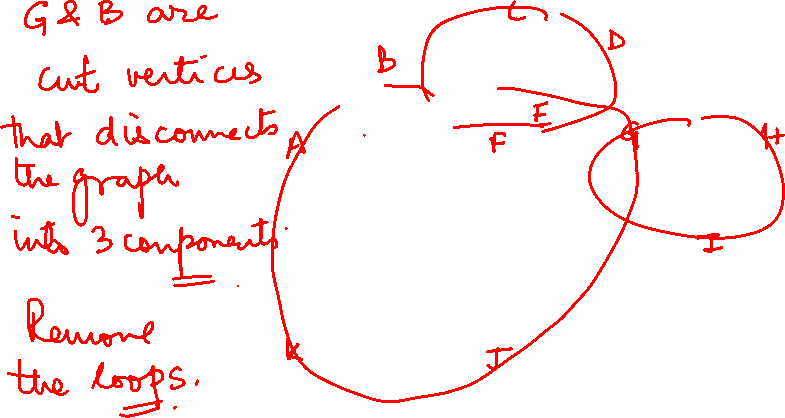 G & B are
cut vertices
that disconnects
the graph
into 3 components
Remove
the loops.
C
D
B
E
F
A
G
H
I
K
J